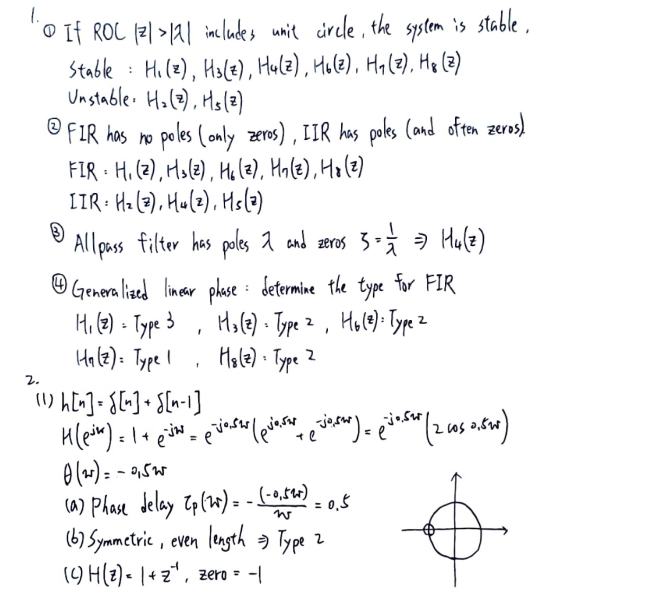 1.
① If ROC |z|>|λ| includes unit circle, the system is stable.
Stable : H₁(z), H₃(z), H₄(z), H₆(z), H₇(z), H₈(z)
Unstable: H₂(z), H₅(z)
② FIR has no poles (only zeros), IIR has poles (and often zeros)
FIR : H₁(z), H₃(z), H₆(z), H₇(z), H₈(z)
IIR : H₂(z), H₄(z), H₅(z)
③ Allpass filter has poles λ and zeros ζ = 1/λ ⇒ H₄(z)
④ Generalized linear phase : determine the type for FIR
H₁(z) = Type 3 , H₃(z) = Type 2 , H₆(z): Type 2
H₇(z): Type 1 , H₈(z) = Type 2
2.
(1) h[n] = δ[n] + δ[n-1]
H(e^{jω}) = 1 + e^{-jω} = e^{-j0.5ω}(e^{j0.5ω} + e^{-j0.5ω}) = e^{-j0.5ω}(2 cos 0.5ω)
θ(ω) = -0.5ω
(a) Phase delay τp(ω) = -(-0.5ω)/ω = 0.5
(b) Symmetric, even length ⇒ Type 2
(c) H(z) = 1 + z⁻¹, zero = -1